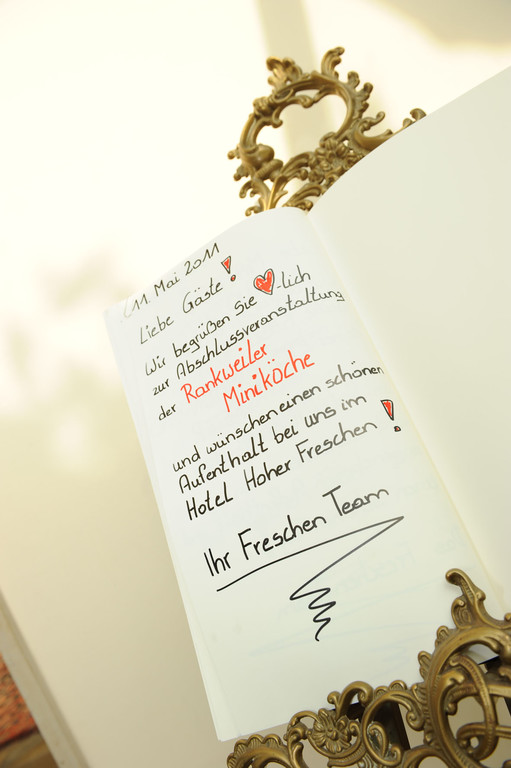 11. Mai 2011
Liebe Gäste!
Wir begrüßen Sie ♥-lich
zur Abschlussveranstaltung
der Rankweiler
Miniköche
und wünschen einen schönen
Aufenthalt bei uns im
Hotel Hoher Freschen!
Ihr Freschen Team